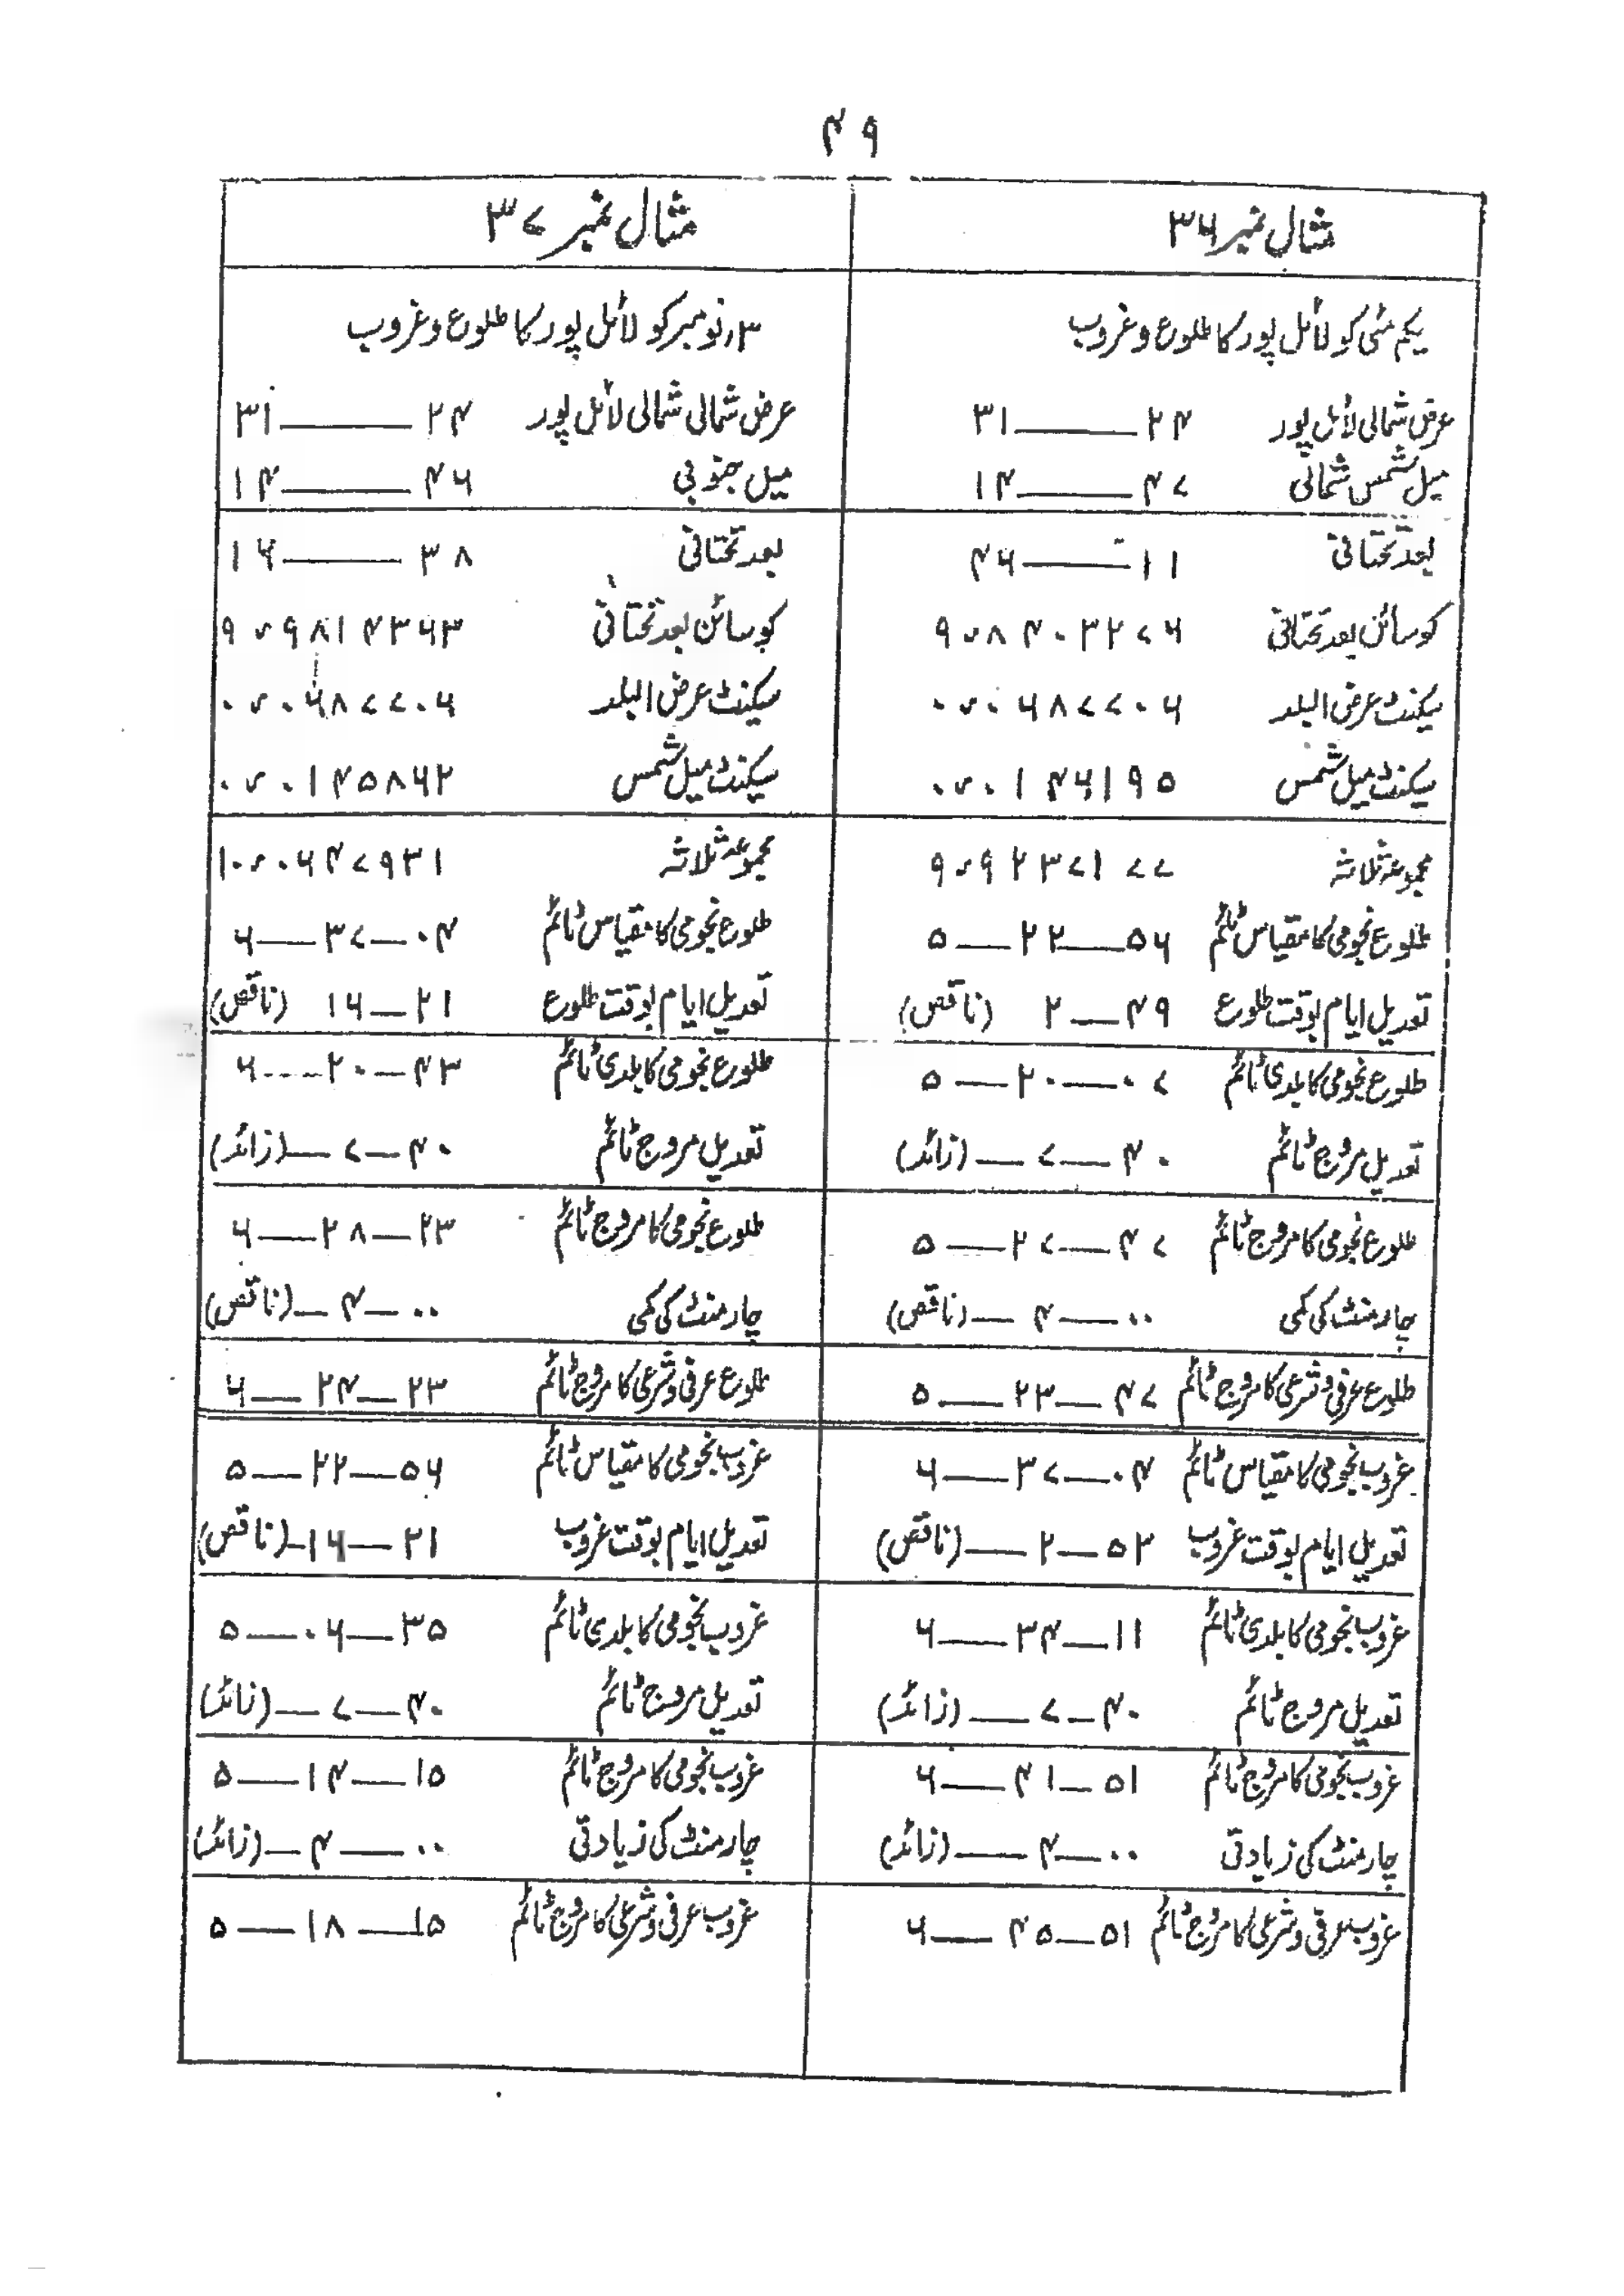 ۴۹
مثال نمبر ۳۶
یکم مئی کو لائل پور کا طلوع و غروب
عرض شمالی لائل پور ۳۱——۲۴
میل شمس شمالی ۱۴——۴۷
بعد تحتانی ۴۶——۱۱
کوسائن بعد تحتانی ۹٫۸۴۰۳۲۷۶
سیکنٹ عرض البلد ۰٫۰۶۸۷۷۰۶
سیکنٹ میل شمس ۰٫۰۱۴۶۱۹۵
مجموعہ ثلاثہ ۹٫۹۲۳۷۱۷۷
طلوع نجومی کا مقیاس ٹائم ۵—۲۲—۵۶
تعدیل ایام بوقت طلوع ۲—۴۹ (ناقص)
طلوع نجومی کا بلدی ٹائم ۵—۲۰—۰۷
تعدیل مروج ٹائم ۷—۴۰ — (زائد)
طلوع نجومی کا مروج ٹائم ۵—۲۷—۴۷
چار منٹ کی کمی ۴—۰۰ — (ناقص)
طلوع عرفی و شرعی کا مروج ٹائم ۵—۲۳—۴۷
غروب نجومی کا مقیاس ٹائم ۶—۳۷—۰۴
تعدیل ایام بوقت غروب ۲—۵۲ — (ناقص)
غروب نجومی کا بلدی ٹائم ۶—۳۴—۱۱
تعدیل مروج ٹائم ۷—۴۰ — (زائد)
غروب نجومی کا مروج ٹائم ۶—۴۱—۵۱
چار منٹ کی زیادتی ۴—۰۰ — (زائد)
غروب عرفی و شرعی کا مروج ٹائم ۶—۴۵—۵۱
مثال نمبر ۳۷
۳؍نومبر کو لائل پور کا طلوع و غروب
عرض شمالی شمالی لائل پور ۳۱——۲۴
میل جنوبی ۱۴——۴۶
بعد تحتانی ۱۶——۳۸
کوسائن بعد تحتانی ۹٫۹۸۱۴۳۶۳
سیکنٹ عرض البلد ۰٫۰۶۸۷۷۰۶
سیکنٹ میل شمس ۰٫۰۱۴۵۸۶۲
مجموعہ ثلاثہ ۱۰٫۰۶۴۷۹۳۱
طلوع نجومی کا مقیاس ٹائم ۶—۳۷—۰۴
تعدیل ایام بوقت طلوع ۱۶—۲۱ (ناقص)
طلوع نجومی کا بلدی ٹائم ۶—۲۰—۴۳
تعدیل مروج ٹائم ۷—۴۰ — (زائد)
طلوع نجومی کا مروج ٹائم ۶—۲۸—۲۳
چار منٹ کی کمی ۴—۰۰ — (ناقص)
طلوع عرفی و شرعی کا مروج ٹائم ۶—۲۴—۲۳
غروب نجومی کا مقیاس ٹائم ۵—۲۲—۵۶
تعدیل ایام بوقت غروب ۱۶—۲۱ — (ناقص)
غروب نجومی کا بلدی ٹائم ۵—۰۶—۳۵
تعدیل مروج ٹائم ۷—۴۰ — (زائد)
غروب نجومی کا مروج ٹائم ۵—۱۴—۱۵
چار منٹ کی زیادتی ۴—۰۰ — (زائد)
غروب عرفی و شرعی کا مروج ٹائم ۵—۱۸—۱۵